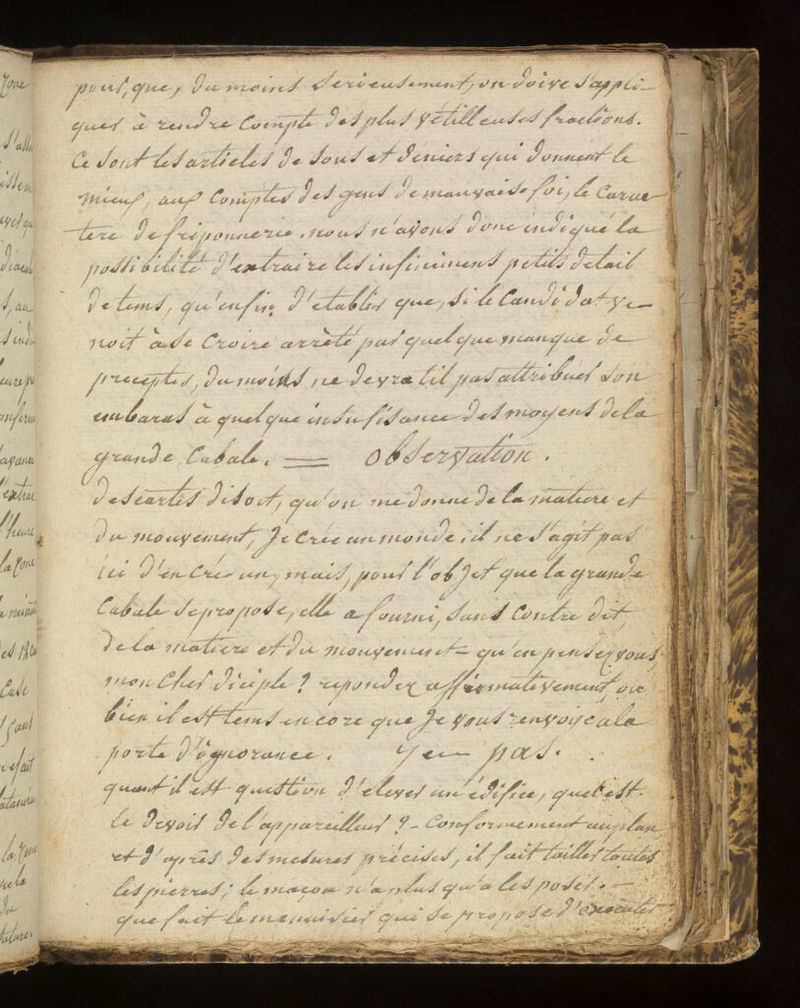 pour, que, du moins serieusement, on doive s'appli-
quer à rendre compte des plus vétilleuses fractions.
Ce sont les articles de sous et deniers qui donnent le
mieux, aux comptes des gens de mauvaise foi, le carac
tere de friponnerie. nous n'avons donc indiqué la
possibilité d'extraire les infiniment petits detail
de tems, qu'enfin d'etablir que, si le candidat ve-
noit à se croire arrèté par quelque manque de
preceptes, du moins ne devra til pas attribuer son
embaras à quelque insufisance des moyens de la
grande Cabale. = Observation.
Descartes disoit, qu'on me donne de la matiere et
du mouvement, Je crée un monde, il ne s'agit pas
ici d'en créer un, mais, pour l'objet que la grande
Cabale se propose, elle a fourni, sans contre dit,
de la matiere et du mouvement = qu'en pensez vous,
mon cher diciple ? repondez affirmativement, ou
bien il est tems encore que Je vous renvoye a la
porte d'ignorance. pas.
quant il est question d'elever un édifice, quel est
le devoir de l'appareilleur ? - Conformement au plan
et d'après des mesures précises, il fait tailler toutes
les pierres ; le maçon n'a plus qu'a les poser. -
que fait le menuisier qui se propose d'executer